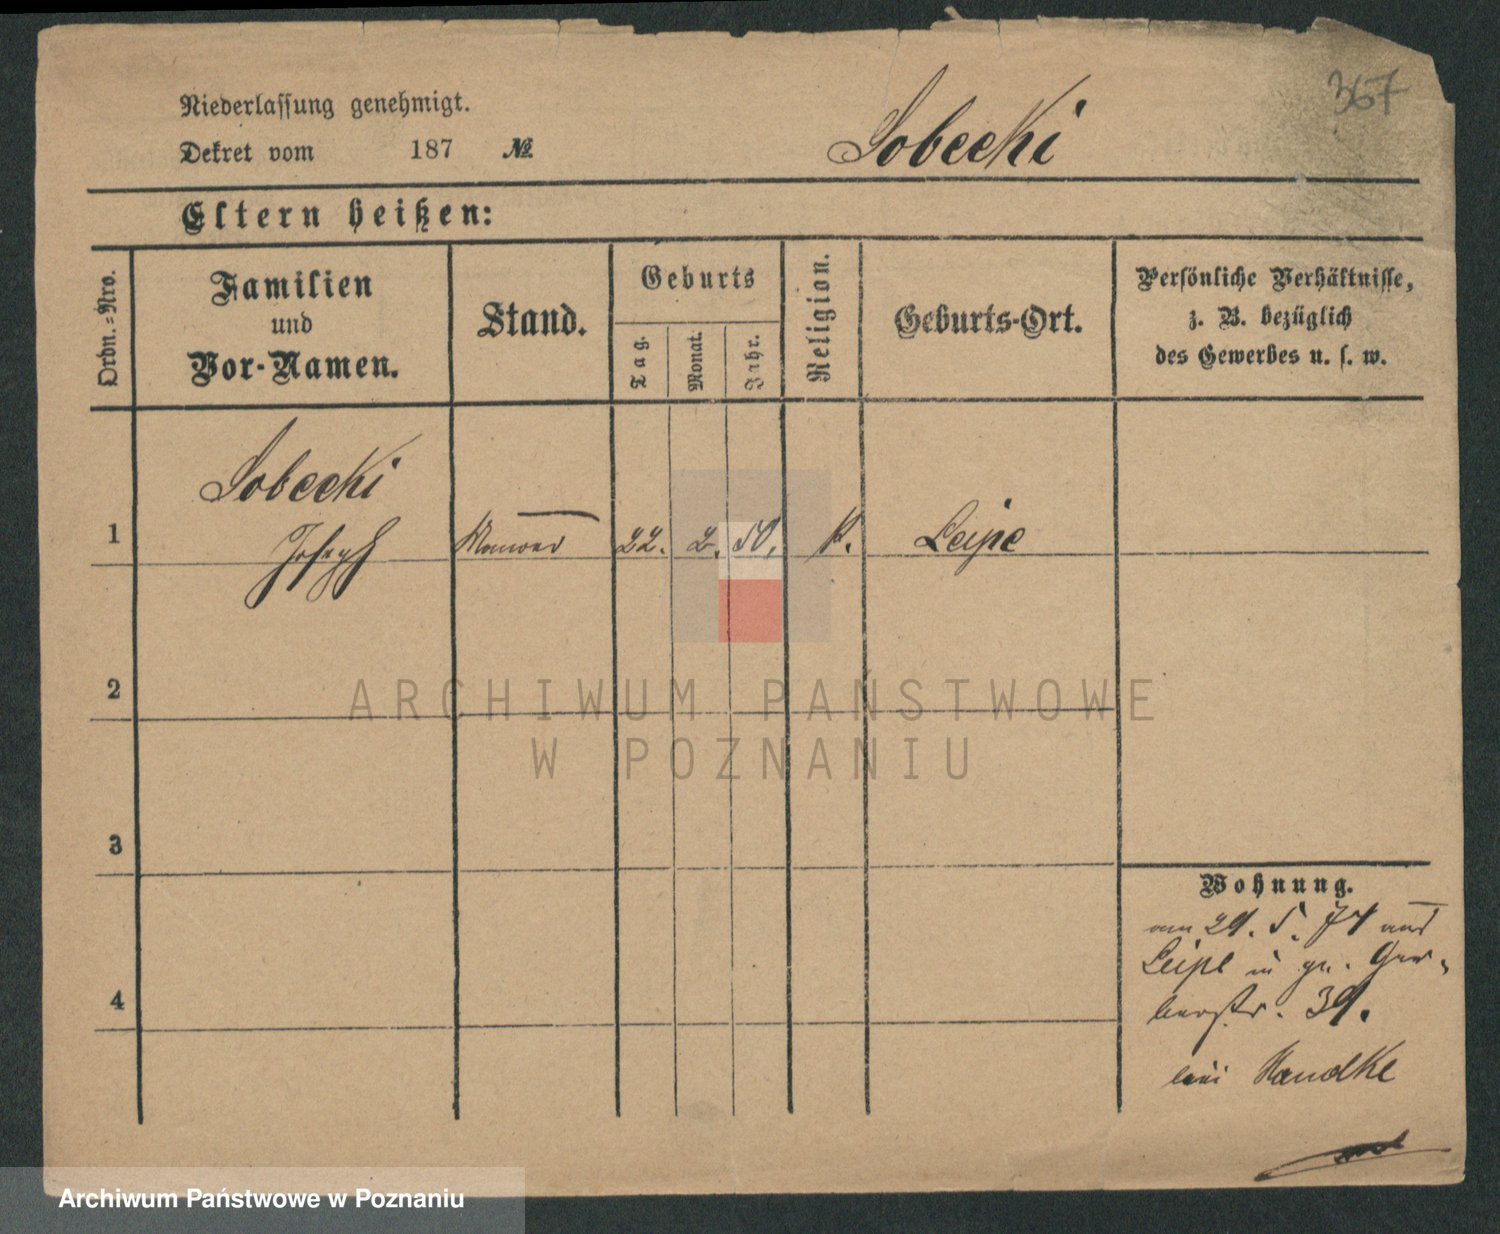 367
Niederlassung genehmigt.
Dekret vom 187 №
Sobecki
Eltern heißen:
Ordn.-Nro.
Familien
und
Vor-Namen.
Stand.
Geburts
Tag.
Monat.
Jahr.
Religion.
Geburts-Ort.
Persönliche Verhältnisse,
z. B. bezüglich
des Gewerbes u. s. w.
Sobecki
1 Joseph 22. 2. 50. k. Leipe
2
3
4
ARCHIWUM PAŃSTWOWE
W POZNANIU
Wohnung.
am 29. 5. 74 aus
Leipe in gr. Ger-
berstr. 39.
bei Handke
Archiwum Państwowe w Poznaniu